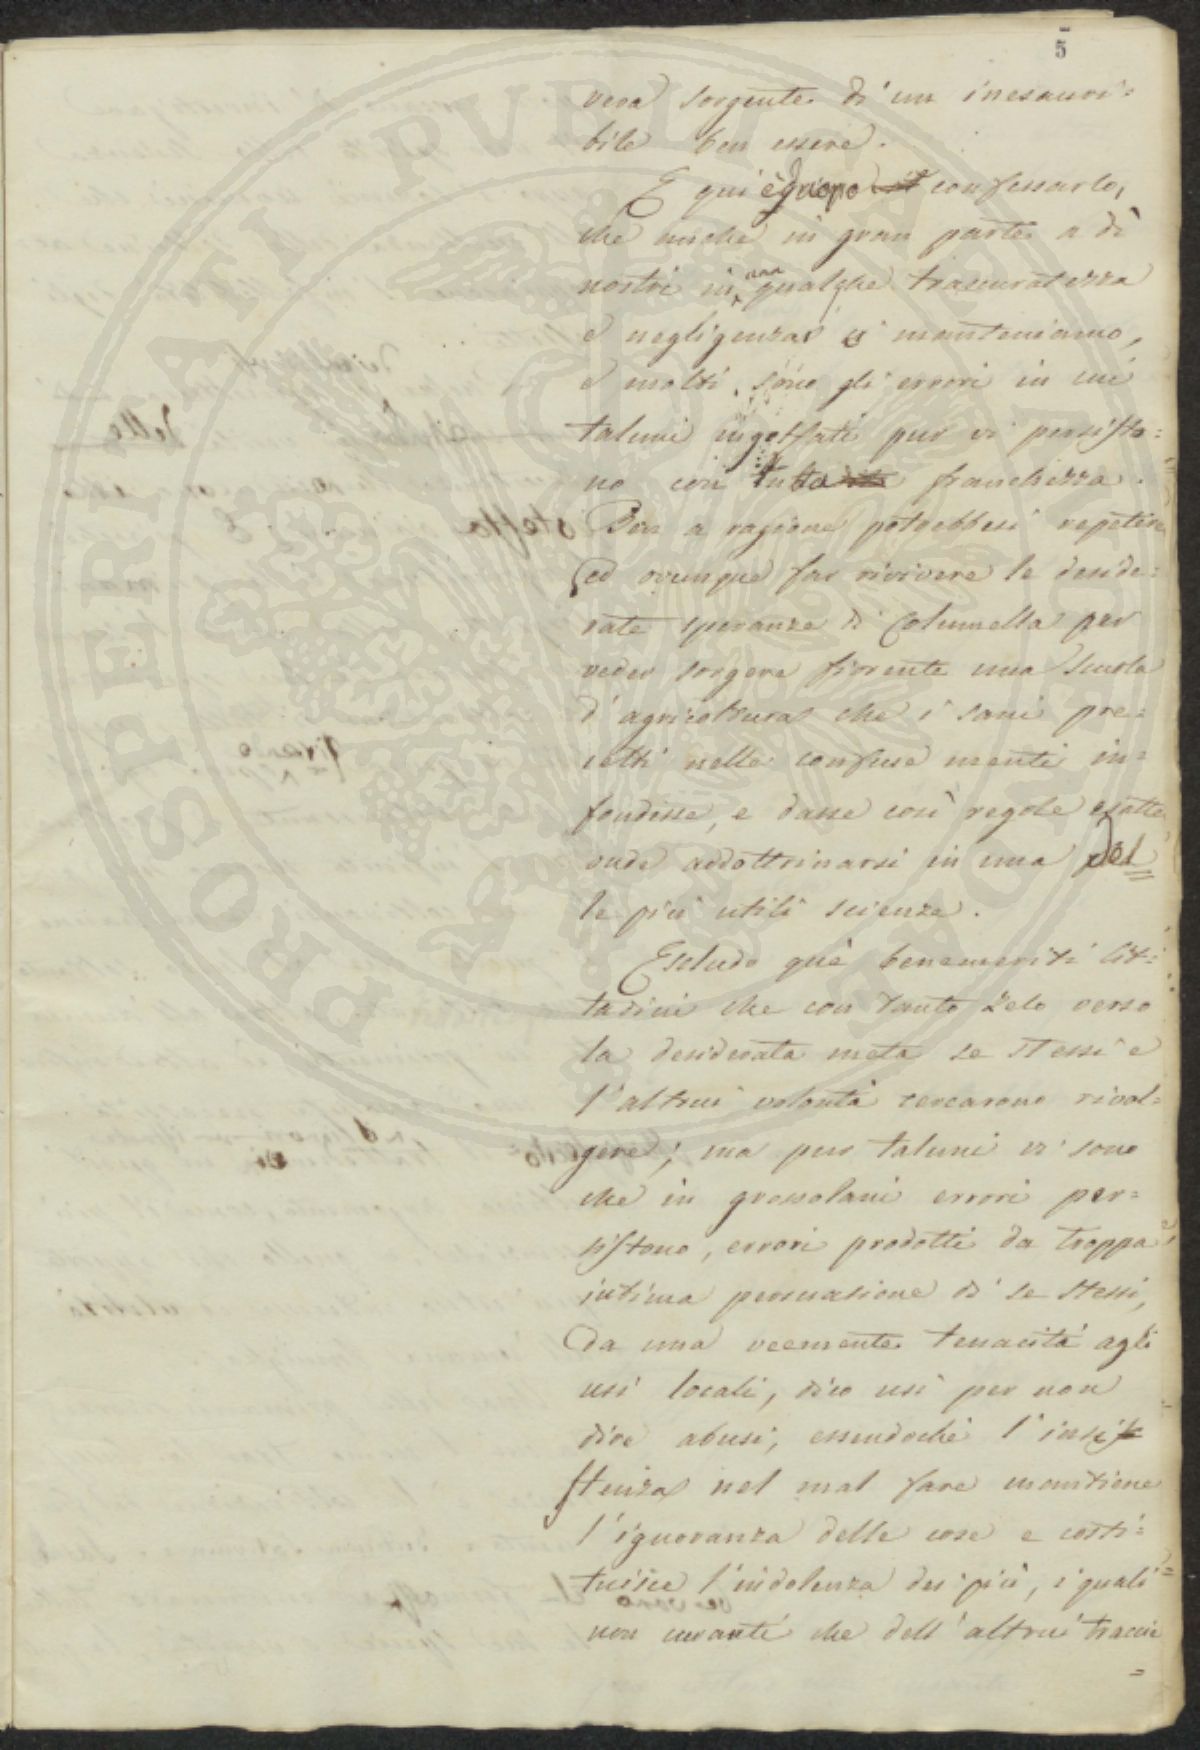 5
vera sorgente di un inesauri=
bile ben essere.
E qui è duopo confessarlo,
che anche in gran parte a dì
nostri in una qualche trascuratezza
e negligenza ci manteniamo,
e molti sono gli errori in cui
taluni ingolfati pur vi persisto=
no con tutta franchezza.
Ben a ragione potrebbesi repetere
ed ovunque far rivivere le deside=
rate speranze di Columella per
veder sorgere fiorente una scuola
d'agricoltura che i sani pre=
cetti nelle confuse menti in=
fondesse, e dasse così regole esatte
onde addottrinarsi in una del
le più utili scienze.
Escludo què benemeriti cit=
tadini che con tanto zelo verso
la desiderata meta se stessi e
l'altrui volontà cercarono rivol=
gere; ma pur taluni vi sono
che in grossolani errori per=
sistono, errori prodotti da troppa
intima persuasione di se stessi,
da una veemente tenacità agli
usi locali, dico usi per non
dire abusi, essendochè l'insi
stenza nel mal fare mantiene
l'ignoranza delle cose e costi=
tuisce l'indolenza dei più, i quali
non curanti che dell'altrui traccie
=
PROSPERITATI PVBLICAE